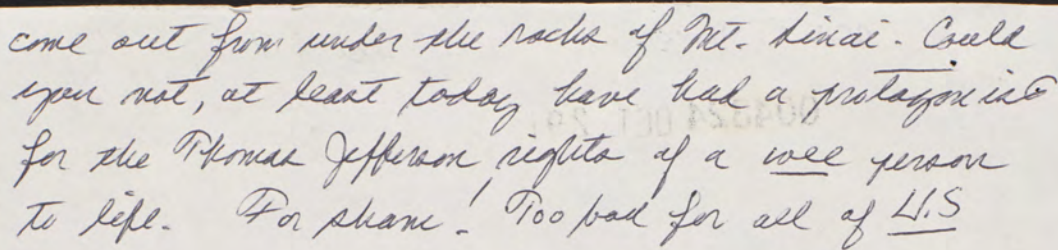 come out from under the rocks of Mt. Sinai. Could
you not, at least today have had a protagonist
for the Thomas Jefferson rights of a wee person
to life. For shame! Too bad for all of U.S